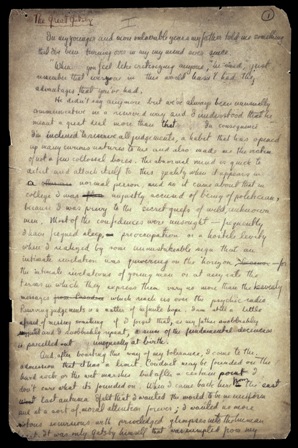 The Great Gatsby
I
1
In my younger and more vulnerable years my father told me something
that I've been turning over in my mind ever since.
"When you feel like criticizing anyone," he said, "just
remember that everyone in this world hasn't had the
advantages that you've had.
He didn't say anymore but we've always been unusually
communicative in a reserved way and I understood that he
meant a great deal more than that. In consequence
I'm inclined to reserve all judgements, a habit that has opened
up many curious natures to me and also made me the victim
of not a few collosal bores. The abnormal mind is quick to
detect and attach itself to this quality when it appears in
a normal person, and so it came about that in
college I was unjustly accused of being a politician,
because I was privy to the secret griefs of wild, unknown
men. Most of the confidences were unsought — frequently
I have feigned sleep, preoccupation or a hostile levity
when I realized by some unmistakable sign that an
intimate revelation was quivering on the horizon for
the intimate revelations of young men or at any rate the
terms in which they express them vary no more than the heavenly
messages which reach us over the psychic radio.
Reserving judgements is a matter of infinite hope. I am still a little
afraid of missing something if I forget that, as my father snobbishly
and I snobbishly repeat, a sense of the fundamental decencies
is parcelled out unequally at birth.
And after boasting this way of my tolerance, I come to the
admission that it has a limit. Conduct may be founded on the
hard rock or the wet marshes but after a certain point I
don't care what its founded on. When I came back from the east
last autumn I felt that I wanted the world to be in uniform
and at a sort of moral attention forever; I wanted no more
riotous excursions with privileged glimpses into the human
heart. It was only Gatsby himself that was exempted from my